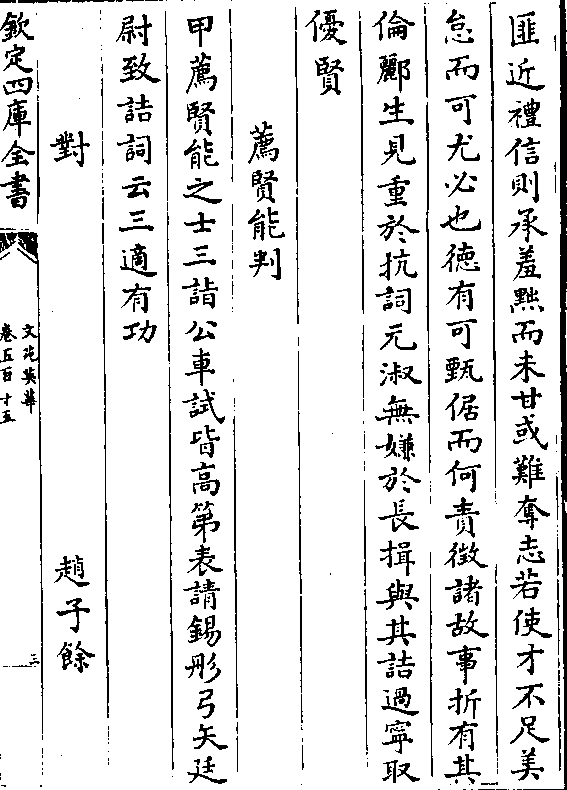 匪近禮信則承羞黜而未甘或難奪志若使才不足美
怠而可尤必也德有可甄倨而何責徵諸故事折有其
倫酈生見重於抗詞元淑無嫌於長揖與其詰過寧取
優賢
薦賢能判
甲薦賢能之士三詣公車試皆高第表請錫彤弓矢廷
尉致詰詞云三適有功
對 趙子餘
欽定四庫全書
文苑英華
卷五百十五
三